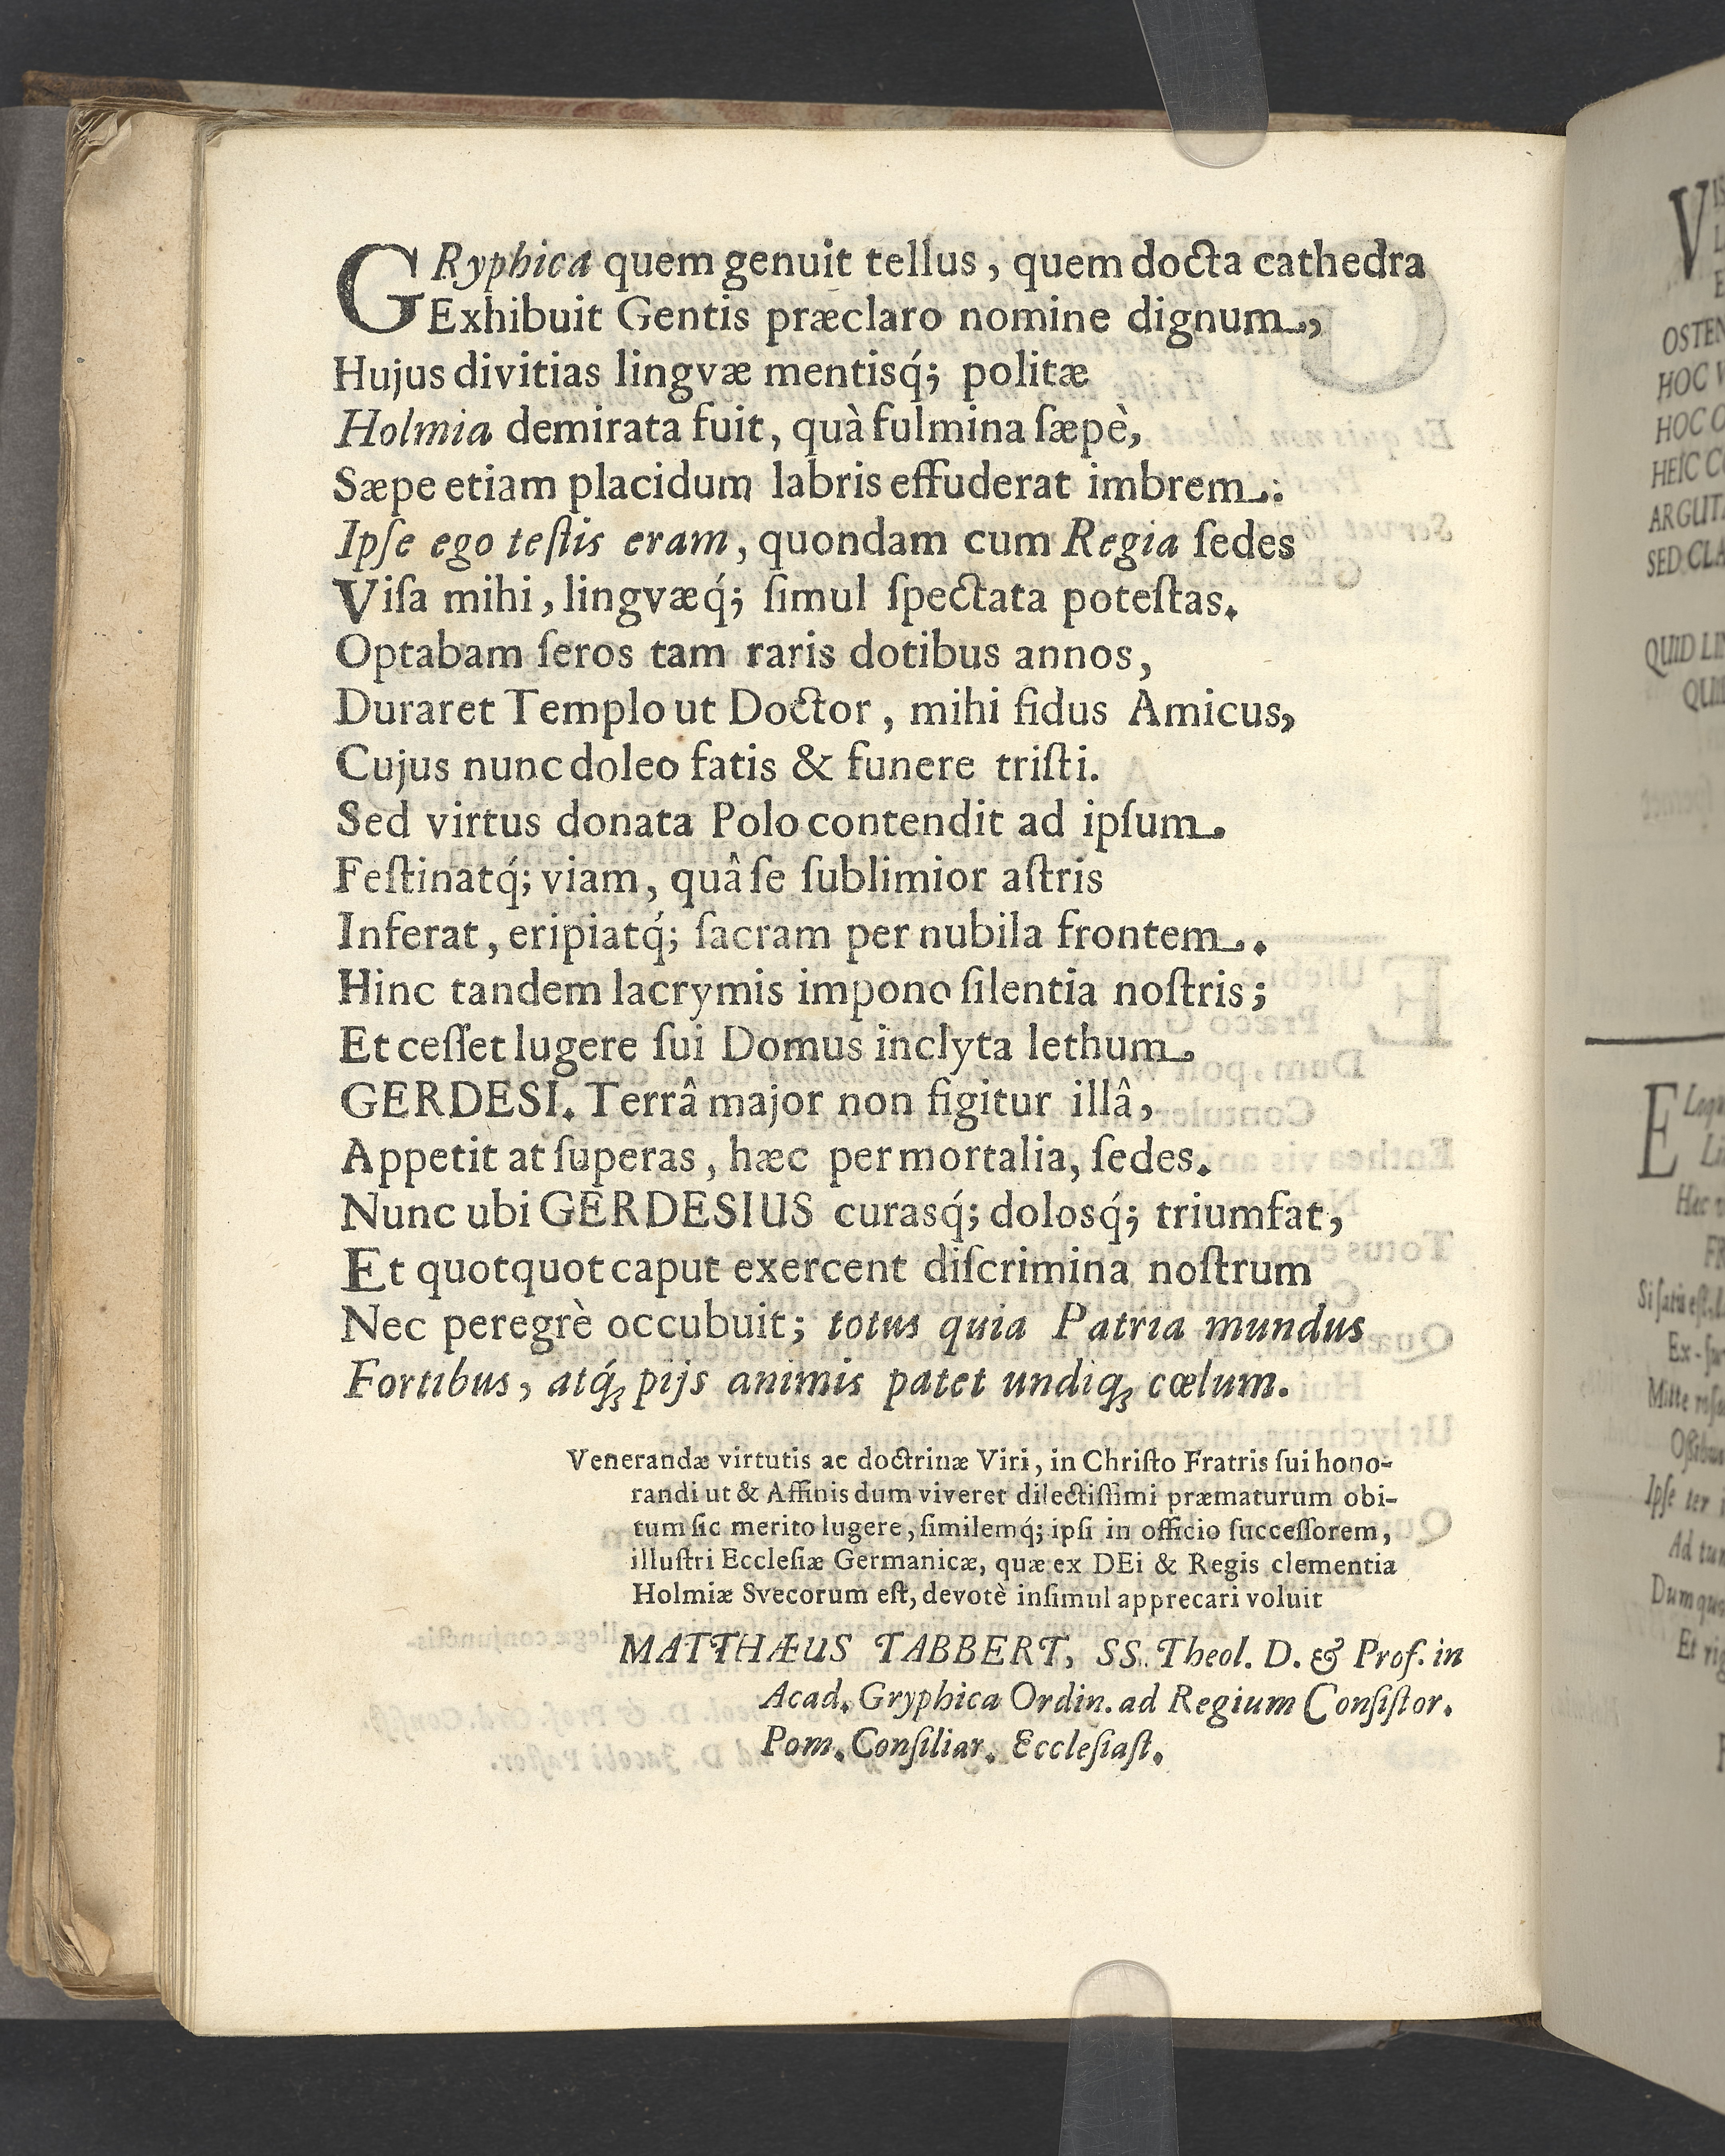 GRyphica quem genuit tellus, quem docta cathedra
Exhibuit Gentis præclaro nomine dignum,
Hujus divitias lingvæ mentisq́; politæ
Holmia demirata fuit, quà fulmina ſæpè,
Sæpe etiam placidum labris effuderat imbrem.:
Ipſe ego teſtis eram, quondam cum Regia ſedes
Viſa mihi, lingvæq́; ſimul ſpectata poteſtas.
Optabam ſeros tam raris dotibus annos,
Duraret Templo ut Doctor, mihi fidus Amicus,
Cujus nunc doleo fatis & funere triſti.
Sed virtus donata Polo contendit ad ipſum.
Feſtinatq́; viam, quâ ſe ſublimior aſtris
Inferat, eripiatq́; ſacram per nubila frontem.
Hinc tandem lacrymis impono ſilentia noſtris;
Et ceſſet lugere ſui Domus inclyta lethum.
GERDESI. Terrâ major non figitur illâ,
Appetit at ſuperas, hæc per mortalia, ſedes.
Nunc ubi GERDESIUS curasq́; dolosq́; triumfat,
Et quotquot caput exercent diſcrimina noſtrum
Nec peregrè occubuit; totus quia Patria mundus
Fortibus, atq́; pijs animis patet undiq; cœlum.
Venerandæ virtutis ac doctrinæ Viri, in Chriſto Fratris ſui hono-
randi ut & Affinis dum viveret dilectiſſimi præmaturum obi-
tum ſic merito lugere, ſimilemq́; ipſi in officio ſucceſſorem,
illuſtri Eccleſiæ Germanicæ, quæ ex DEi & Regis clementia
Holmiæ Svecorum eſt, devotè inſimul apprecari voluit
MATTHÆUS TABBERT, SS. Theol. D. & Prof. in
Acad. Gryphica Ordin. ad Regium Conſiſtor.
Pom. Conſiliar. Eccleſiaſt.
OSTEN
HOC
HOC
HEIC
SED CLA
QUID
Ipſe ter
Ad
Et